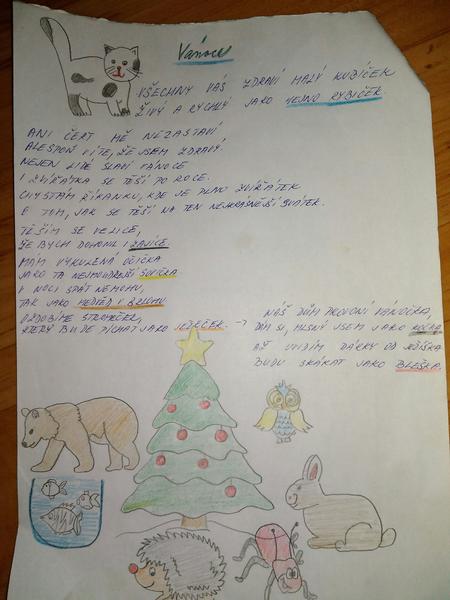 Vánoce
VŠECHNY VÁS ZDRAVÍ MALÝ KUBÍČEK
ŽIVÝ A RYCHLÝ JAKO JEJHO RYBIČEK
ANI ČERT MĚ NEZASTAVÍ
ALESPOŇ VÍTE, ŽE JSEM ZDRAVÝ.
NEJEN LIDÉ SLAVÍ VÁNOCE
I ZVÍŘÁTKA SE TĚŠÍ PO ROCE.
CHYSTÁM ŘÍKANKU, KDE JE PLNO ZVÍŘÁTEK
O TOM, JAK SE TĚŠÍ NA TEN NEJKRÁSNĚJŠÍ SVÁTEK.
TĚŠÍM SE VELICE,
ŽE BYCH DOHONIL I ZAJÍCE
MÁM VYKULENÁ OČIČKA
JAKO TA NEJMOUDŘEJŠÍ SOVIČKA
V NOCI SPÁT NEMOHU,
TAK JAKO MEDVĚD V BRLOHU
OZDOBÍME STROMEČEK,
KTERÝ BUDE PÍCHAT JAKO JEŽEČEK. →
NÁŠ DŮM PROVONÍ VÁNOČKA,
DÁM SI, MLSNÝ JSEM JAKO KOČKA
AŽ UVIDÍM DÁRKY OD JEŽÍŠKA
BUDU SKÁKAT JAKO BLEŠKA.